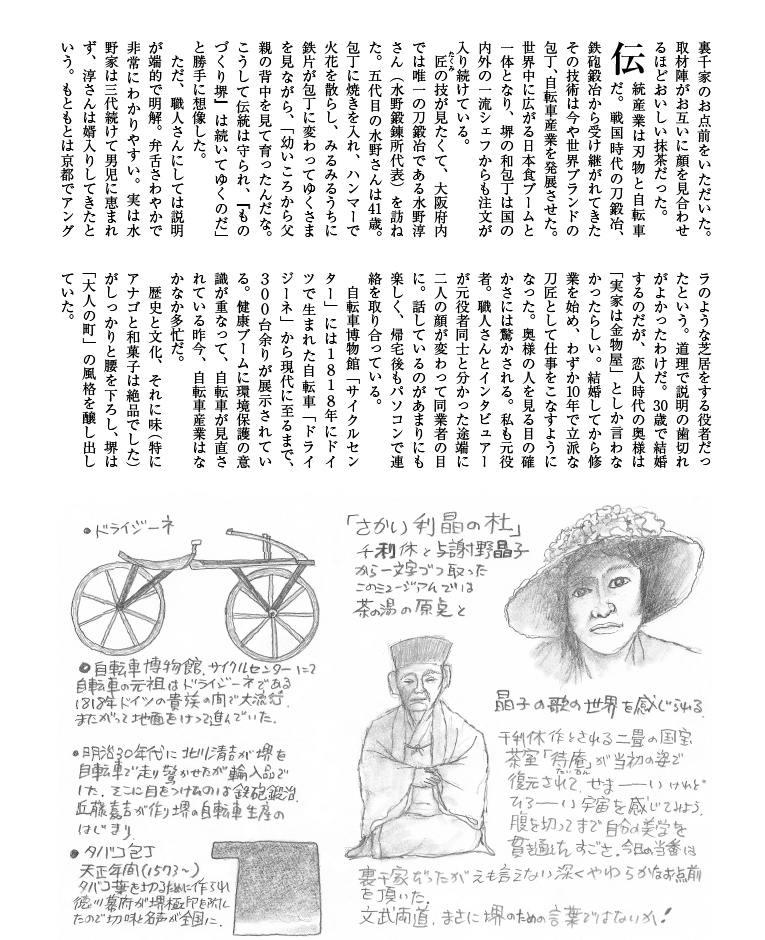 裏千家のお点前をいただいた。
取材陣がお互いに顔を見合わせ
るほどおいしい抹茶だった。
伝統産業は刃物と自転車
だ。戦国時代の刀鍛冶、
鉄砲鍛冶から受け継がれてきた
その技術は今や世界ブランドの
包丁、自転車産業を発展させた。
世界中に広がる日本食ブームと
一体となり、堺の和包丁は国の
内外の一流シェフからも注文が
入り続けている。
匠の技が見たくて、大阪府内
たくみ
では唯一の刀鍛冶である水野淳
さん（水野鍛錬所代表）を訪ね
た。五代目の水野さんは41歳。
包丁に焼きを入れ、ハンマーで
火花を散らし、みるみるうちに
鉄片が包丁に変わってゆくさま
を見ながら、「幼いころから父
親の背中を見て育ったんだな。
こうして伝統は守られ、『もの
づくり堺』は続いてゆくのだ」
と勝手に想像した。
ただ、職人さんにしては説明
が端的で明解。弁舌さわやかで
非常にわかりやすい。実は水
野家は三代続けて男児に恵まれ
ず、淳さんは婿入りしてきたと
いう。もともとは京都でアング
ラのような芝居をする役者だっ
たという。道理で説明の歯切れ
がよかったわけだ。30歳で結婚
するのだが、恋人時代の奥様は
「実家は金物屋」としか言わな
かったらしい。結婚してから修
業を始め、わずか10年で立派な
刀匠として仕事をこなすように
なった。奥様の人を見る目の確
かさには驚かされる。私も元役
者。職人さんとインタビュアー
が元役者同士と分かった途端に
二人の顔が変わって同業者の目
に。話しているのがあまりにも
楽しく、帰宅後もパソコンで連
絡を取り合っている。
自転車博物館「サイクルセン
ター」には1818年にドイ
ツで生まれた自転車「ドライ
ジーネ」から現代に至るまで、
300台余りが展示されてい
る。健康ブームに環境保護の意
識が重なって、自転車が見直さ
れている昨今、自転車産業はな
かなか多忙だ。
歴史と文化、それに味（特に
アナゴと和菓子は絶品でした）
がしっかりと腰を下ろし、堺は
「大人の町」の風格を醸し出し
ていた。
●ドライジーネ
●自転車博物館.サイクルセンターにて
自転車の元祖はドライジーネである
1818年ドイツの貴族の間で大流行.
またがって地面をけって進んでいた.
●明治30年代に北川清吉が堺を
自転車で走り驚かせたが輸入品で
した.そこに目をつけたのは鉄砲鍛冶.
近藤嘉吉が作り堺の自転車生産の
はじまり.
●タバコ包丁
天正年間(1573〜)
タバコ葉を切るために作られ
徳川幕府が堺極印を
たので切味と名声が全国に.
「さかい利晶の杜」
千利休と与謝野晶子
から一文字づつ取った
このミュージアムでは
茶の湯の原点と
晶子の歌の世界を感じられる.
千利休作とされる二畳の国宝
茶室「待庵」が当初の姿で
たいあん
復元されて.せま――いけれど
ひろ――い宇宙を感じてみよう.
腹を切ってまで自分の美学を
貫き通したすごさ.今日の当番は
裏千家だったがえも言えない深くやわらかなお点前
を頂いた.
文武両道.まさに堺のための言葉ではないか！